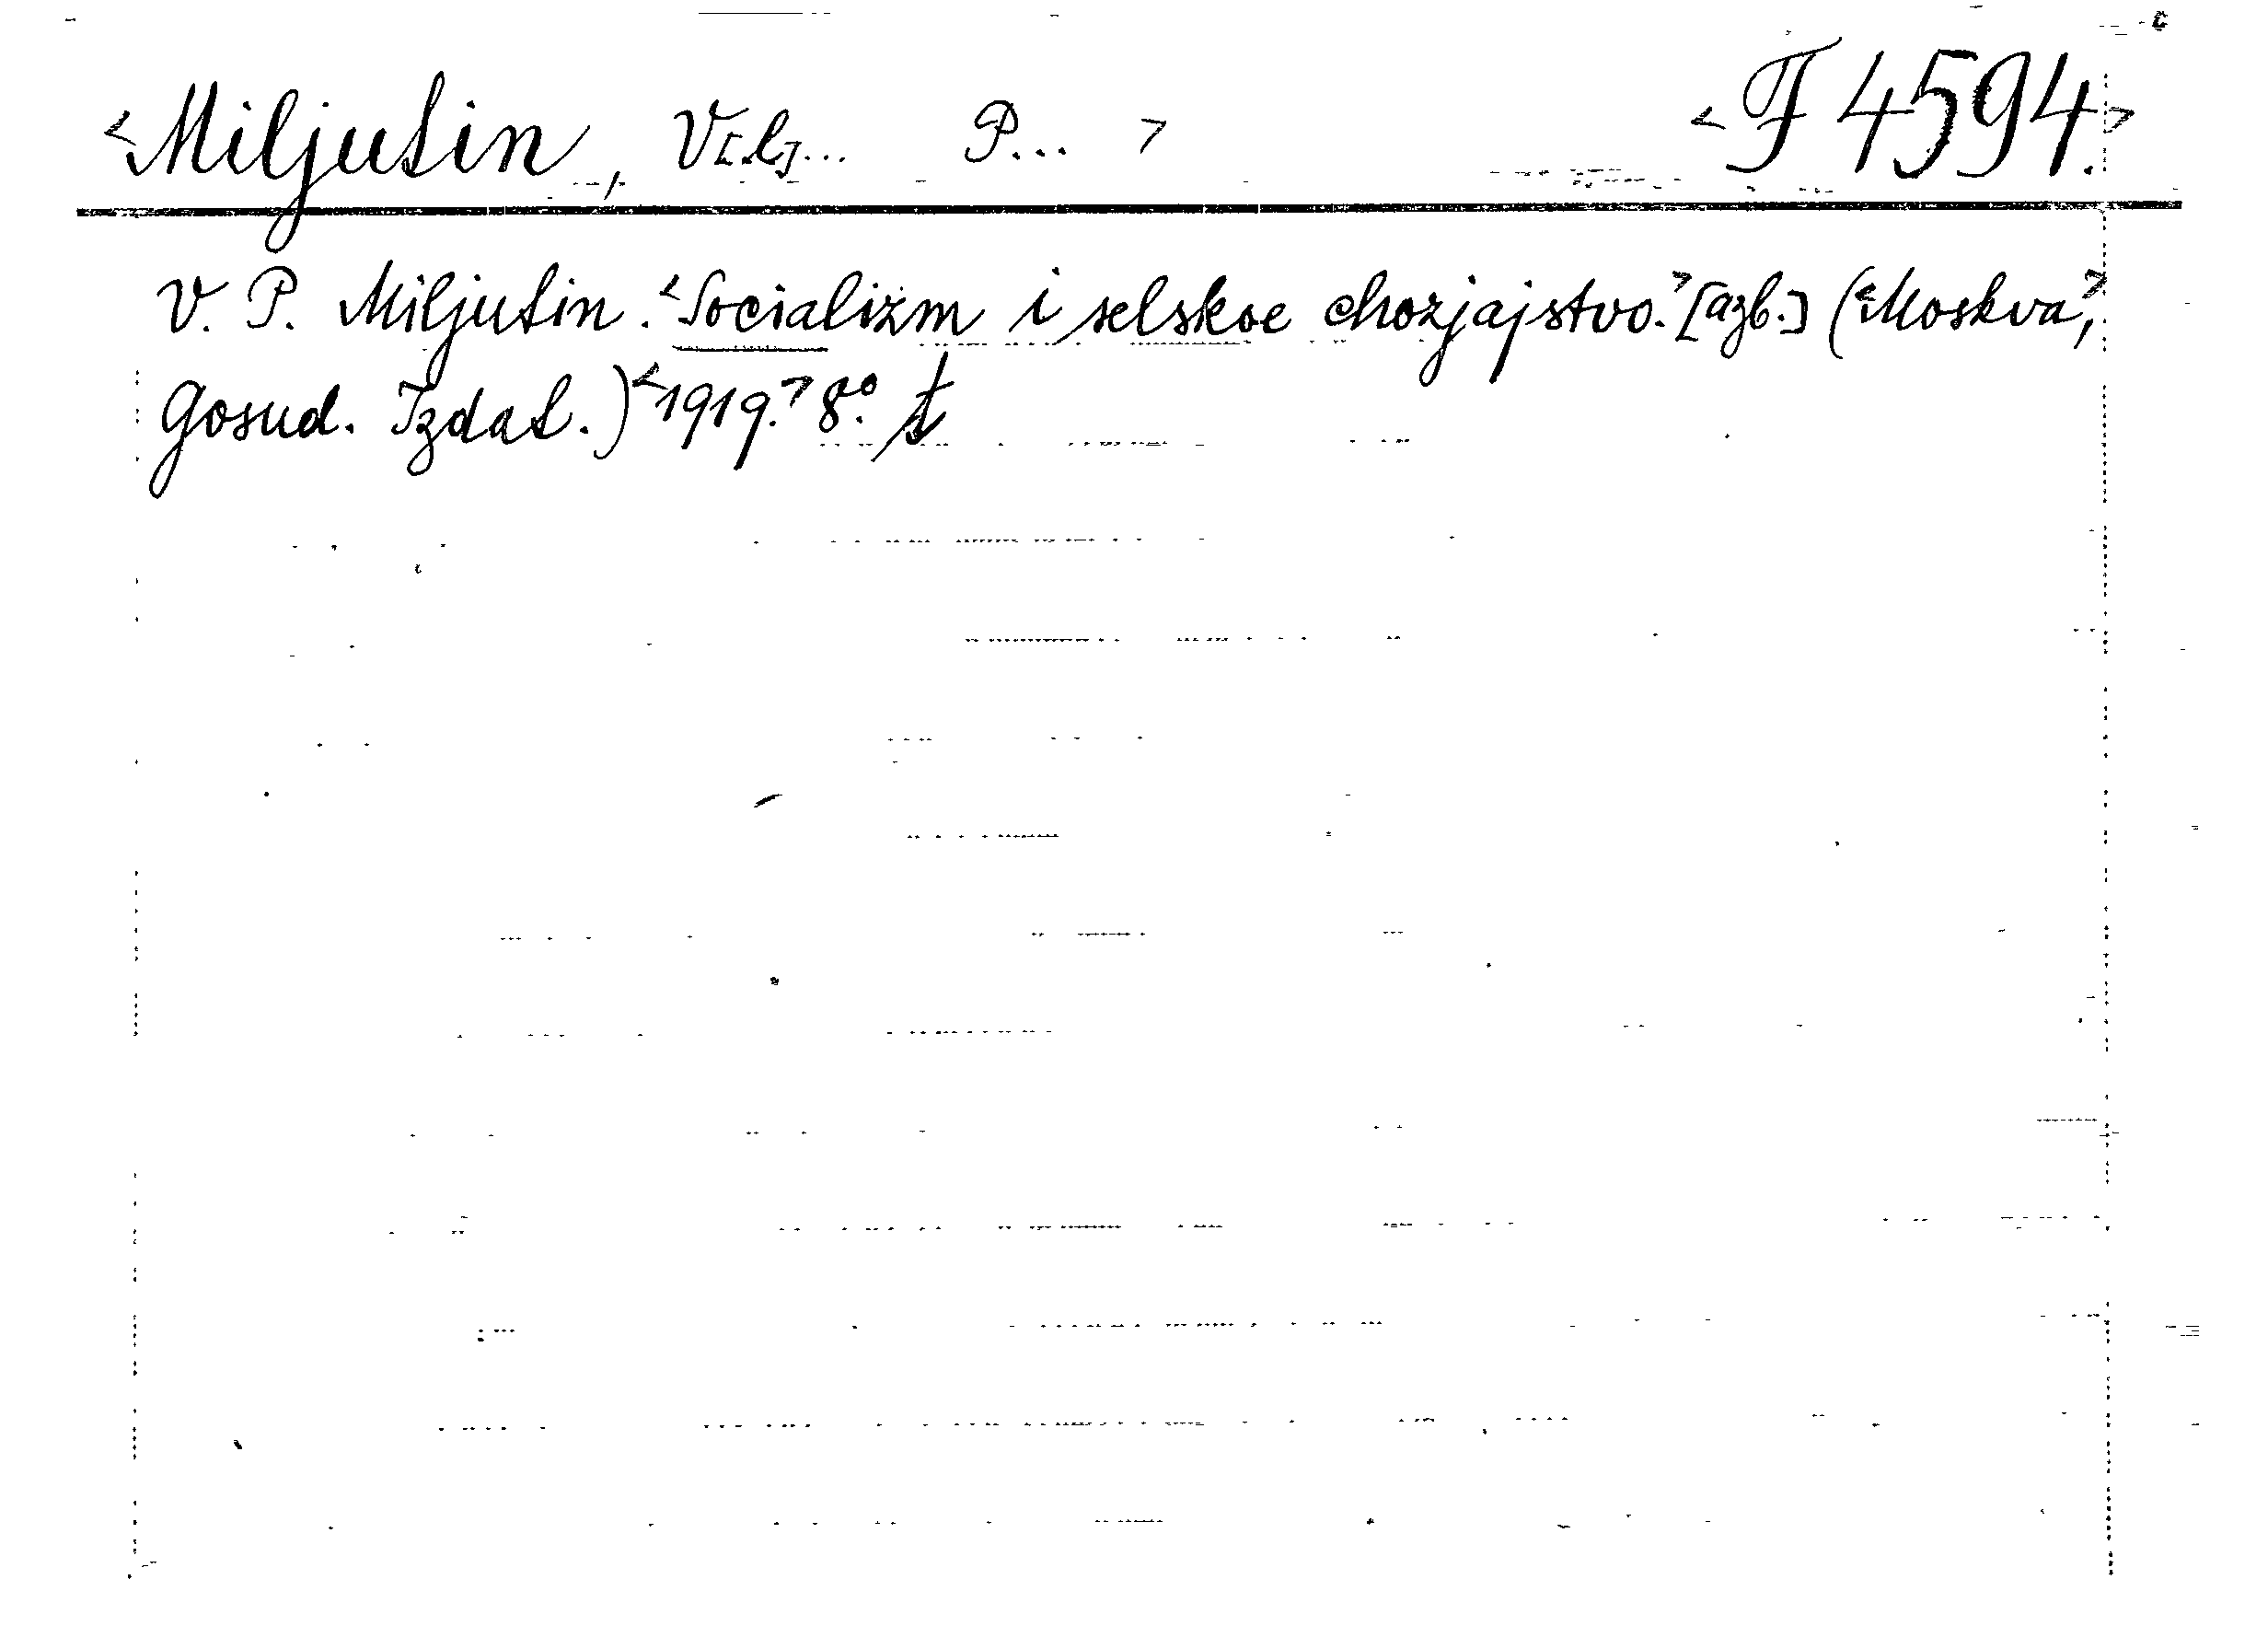 <Miljutin, V[l]... P...> <F 4594.>
V. P. Miljutin. <Socializm i selskoe chozjajstvo.> [azb.] (<Moskva,>
Gosud. Izdat.) <1919.> 8°. t